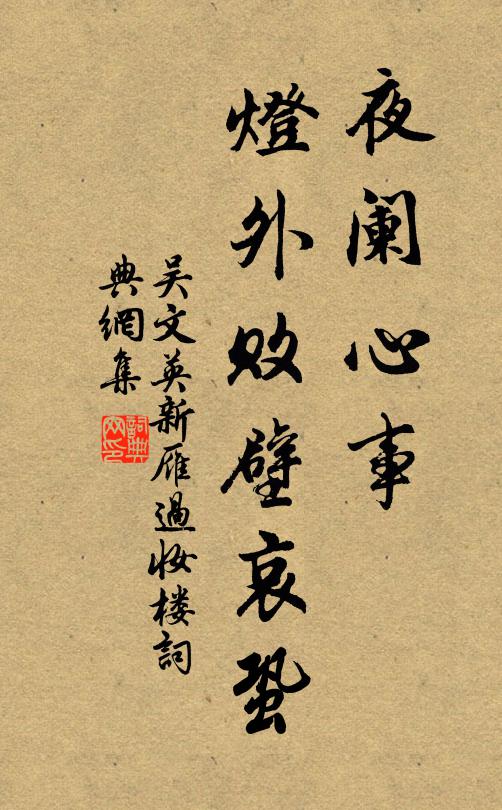 夜阑心事
燈外败壁哀蛩
吴文英新雁過妝楼詞
典網集
詞典網印